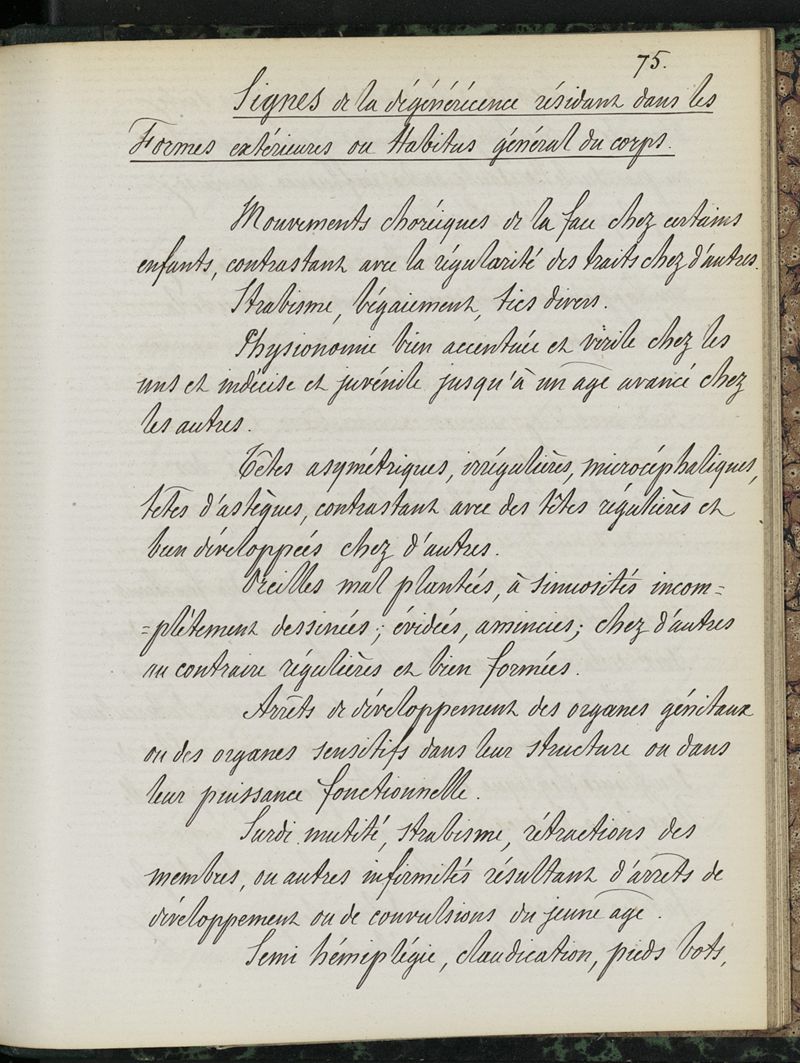 75.
Signes de la dégénérécence résidant dans les
Formes extérieures ou Habitus général du corps.
Mouvements choréiques de la face chez certains
enfants, contrastant avec la régularité des traits chez d'autres.
Strabisme, bégaiement, tics divers.
Physionomie bien accentuée et virile chez les
uns et indécise et juvénile jusqu'à un âge avancé chez
les autres.
Têtes asymétriques, irrégulières, microcéphaliques,
têtes d'astèques, contrastant avec des têtes régulières et
bien développées chez d'autres.
Oreilles mal plantées, à sinuosités incom=
=plètement dessinées; évidées, amincies; chez d'autres
au contraire régulières et bien formées.
Arrêts de développement des organes génitaux
ou des organes sensitifs dans leur structure ou dans
leur puissance fonctionnelle.
Surdi mutité, strabisme, rétractions des
membres, ou autres infirmités résultant d'arrêts de
développement ou de convulsions du jeune âge.
Semi hémiplégie, claudication, pieds bots,